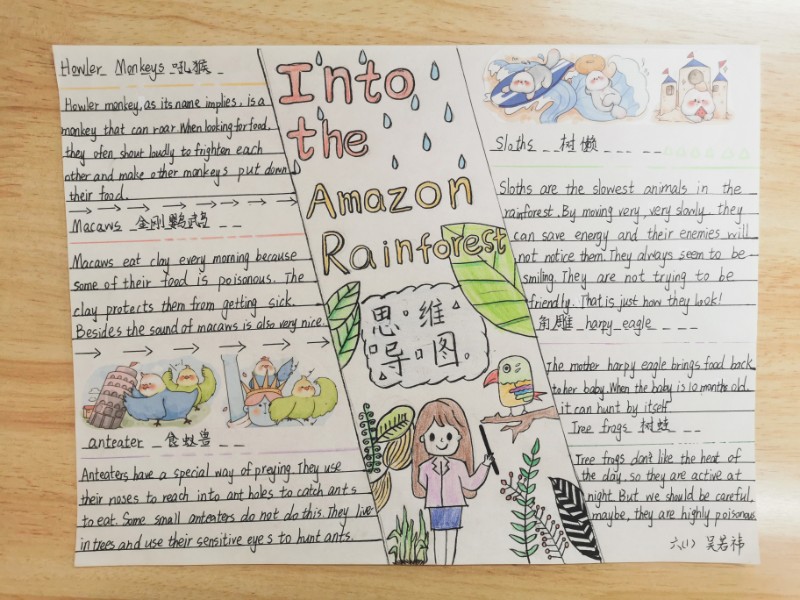 Howler Monkeys 吼猴
Howler monkey, as its name implies, is a
monkey that can roar. When looking for food,
they ofen shout loudly to frighten each
other and make other monkeys put down
their food.
Macaws 金刚鹦鹉
Macaws eat clay every morning because
some of their food is poisonous. The
clay protects them from getting sick.
Besides the sound of macaws is also very nice.
anteater 食蚁兽
Anteaters have a special way of preying They use
their noses to reach into ant holes to catch ants
to eat. Some small anteaters do not do this. They live
in trees and use their sensitive eyes to hunt ants.
Into
the
Amazon
Rainforest
思维
导图
Sloths 树懒
Sloths are the slowest animals in the
rainforest. By moving very, very slowly. they
can save energy and their enemies will
not notice them. They always seem to be
smiling. They are not trying to be
friendly. That is just how they look!
角雕 harpy eagle
The mother harpy eagle brings food back
to her baby. When the baby is 10 months old.
it can hunt by itself
Tree frogs 树蛙
Tree frogs don't like the heat of
the day, so they are active at
night. But we should be careful,
maybe, they are highly poisonous
六(1) 吴若祎